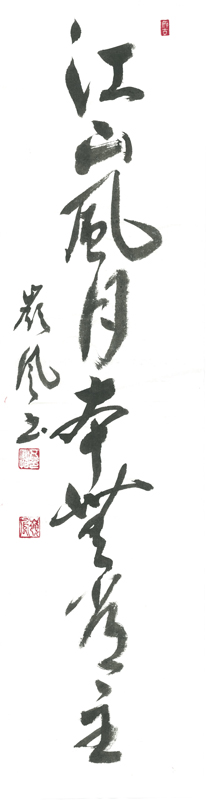 江山風月本無常主
風書